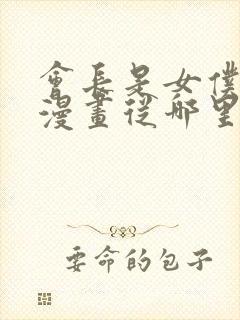 會長是女僕
漫畫從哪里
要命的包子